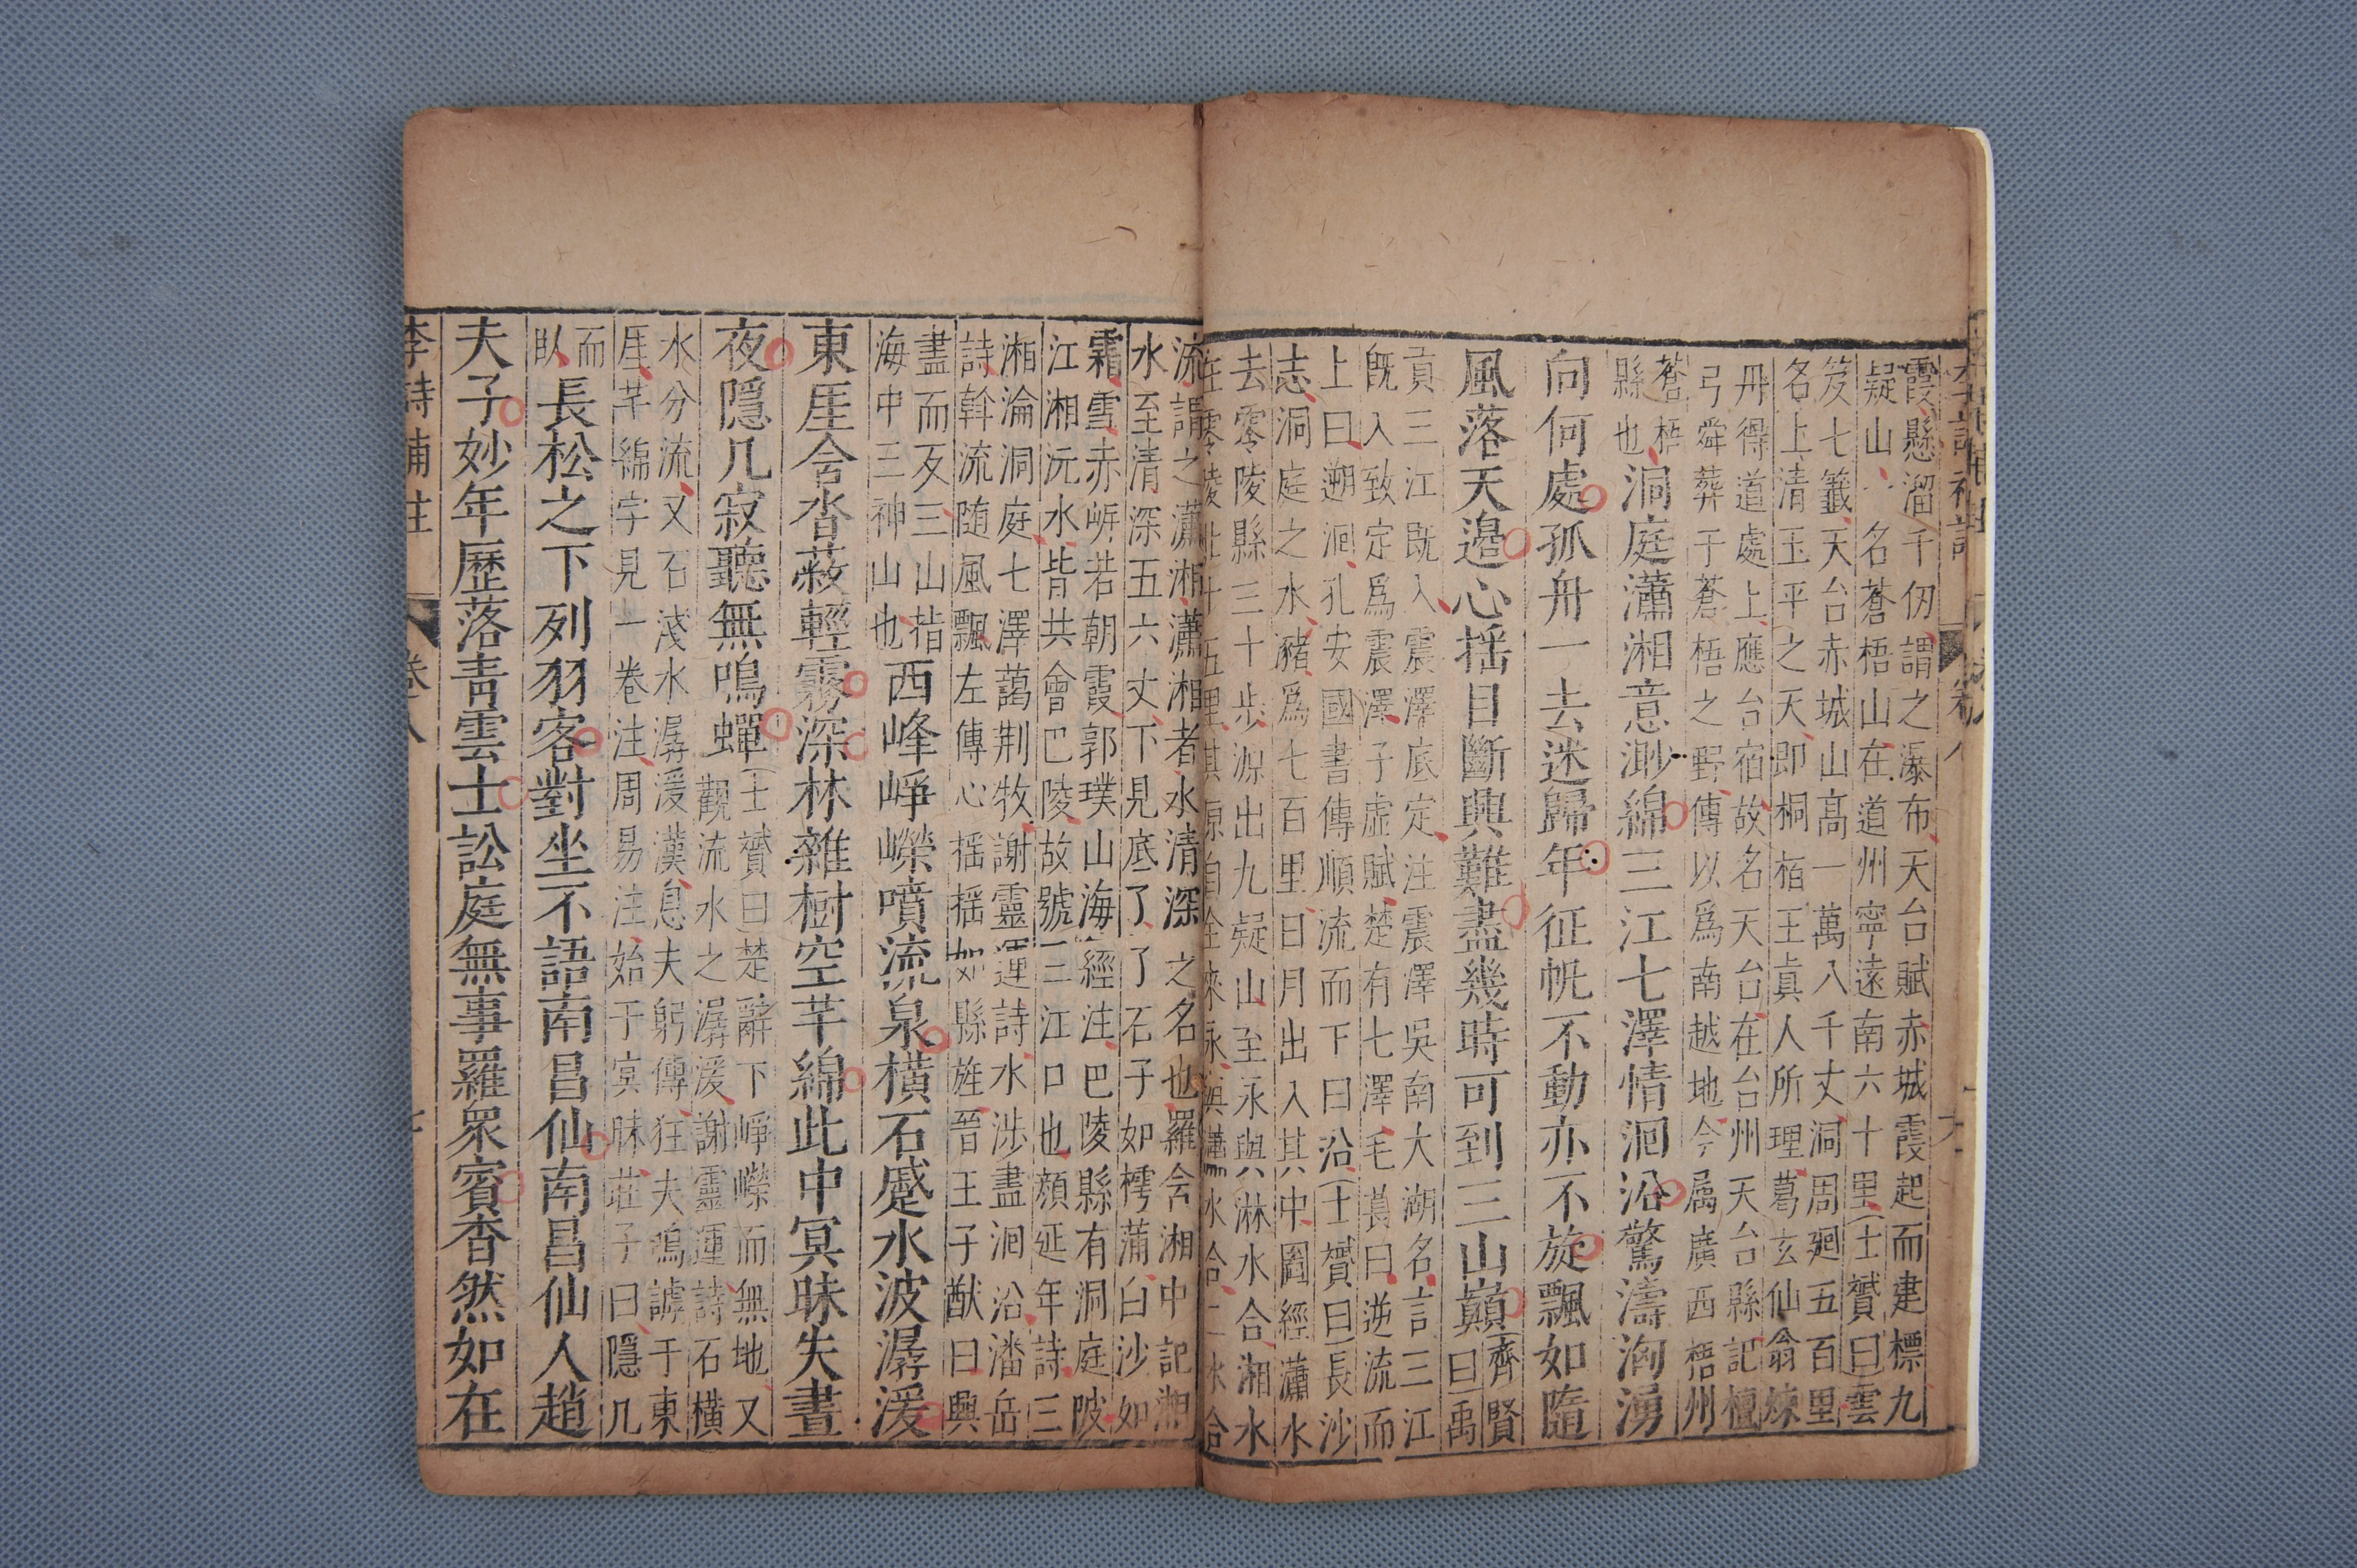 霞懸溜千仞謂之瀑布天台賦赤城霞起而建標九
疑山一名蒼梧山在道州寧遠南六十里士贇曰雲
笈七籖天台赤城山高一萬八千丈洞周廻五百里
名上清玉平之天即桐栢王真人所理葛玄仙翁煉
丹得道處上應台宿故名天台在台州天台縣記檀
弓舜葬于蒼梧之野傳以爲南越地今属廣西梧州
蒼梧
縣也
洞庭瀟湘意渺綿三江七澤情洄沿驚濤洶湧
向何處孤舟一去迷歸年征帆不動亦不旋飄如隨
風落天邉心揺目斷興難盡幾時可到三山巔
齊賢
曰禹
貢三江既入震澤底定注震澤吳南大湖名言三江
既入致定爲震澤子虛賦楚有七澤毛萇曰逆流而
上曰遡洄孔安國書傳順流而下曰沿士贇曰長沙
志洞庭之水瀦爲七百里日月出入其中圖經瀟水
去零陵縣三十步源出九疑山至永與淋水合湘水
流謂之瀟湘瀟湘者水清深之名也羅含湘中記湘
水至清深五六丈下見底了了石子如樗蒲白沙如
霜雪赤㟁若朝霞郭璞山海經注巴陵縣有洞庭陂
江湘沅水皆共會巴陵故號三江口也顔延年詩三
湘淪洞庭七澤藹荆牧謝靈運詩水涉盡洄沿潘岳
詩斡流随風飄左傳心揺揺如縣旌晉王子猷曰興
盡而反三山指
海中三神山也
西峰崢嶸噴流泉橫石蹙水波潺湲
東厓合沓蔽輕霧深林雜樹空芊綿此中冥昧失晝
夜隱几寂聽無鳴蟬
士贇曰楚辭下崢嶸而無地又
觀流水之潺湲謝靈運詩石橫
水分流又石淺水潺湲漢息夫躬傳狂夫嘷謼于東
厓芊綿字見一卷注周易注始于冥昧莊子曰隱几
而
臥
長松之下列羽客對坐不語南昌仙南昌仙人趙
夫子妙年歷落青雲士訟庭無事羅衆賓杳然如在
李詩補註
卷八